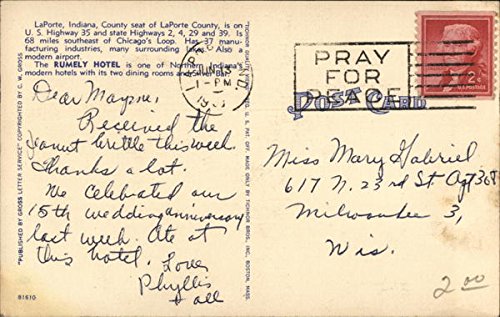 LaPorte, Indiana, County seat of LaPorte County, is on
U. S. Highway 35 and state Highways 2, 4, 29 and 39. Is
68 miles southeast of Chicago's Loop. Has 37 manu-
facturing industries, many surrounding lakes. Also a
modern airport.
The RUMELY HOTEL is one of Northern Indiana's
modern hotels with its two dining rooms and Silver Bar.
Dear Mayme,
Received the
peanut brittle this week.
Thanks a lot.
We celebrated our
15th wedding anniversary
last week. Ate at
this hotel. Love
Phyllis
& all
81610
"PUBLISHED BY GROSS LETTER SERVICE" COPYRIGHTED BY C. W. GROSS
MADE ONLY BY TICHNOR BROS., INC., BOSTON, MASS.
LAPORTE
JUN
1-PM
PRAY
FOR
PEACE
POST CARD
2¢
U.S. POSTAGE
Miss Mary Gabriel
617 N. 23rd St. Apt 368
Milwaukee 3,
Wis.
2.00